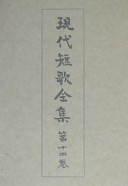 現代短歌全集
第十四巻